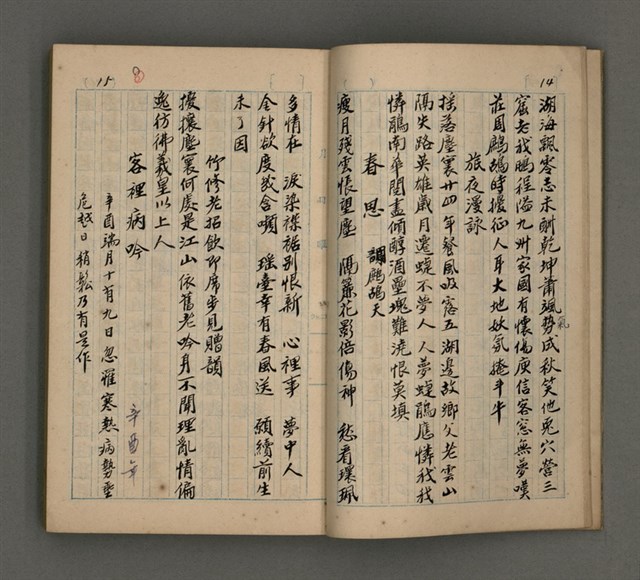 14
湖海飄零志未酬乾坤蕭颯勢成秋笑他兎穴營三
氣
窟老我鵬程溢九州家國有懷傷庾信客窓無夢嘆
莊周鷓鴣時擾征人耳大地妖氛捲斗牛
旅夜漫詠
搖落塵寰廿四年餐風吸露五湖邊故鄉父老雲山
隔失路英雄歲月遷蝶不夢人人夢蝶鵑應憐我我
憐鵑南華閱盡傾醇酒壘塊難澆恨莫填
春思 調鷓鴣天
瘦月殘雲悵望塵 隔簾花影倍傷神 愁看環珮
15
多情在 淚染襟裾別恨新 心裡事 夢中人
金針欲度幾含嚬 瑤臺幸有春風送 願續前生
未了因
竹修老招飲即席步見贈韻
擾攘塵寰何處是江山依舊老吟身不關理亂情偏
逸彷彿羲皇以上人
客裡病吟
辛酉年
辛酉端月十有九日忽罹寒熱病勢至
危越日稍鬆乃有是作